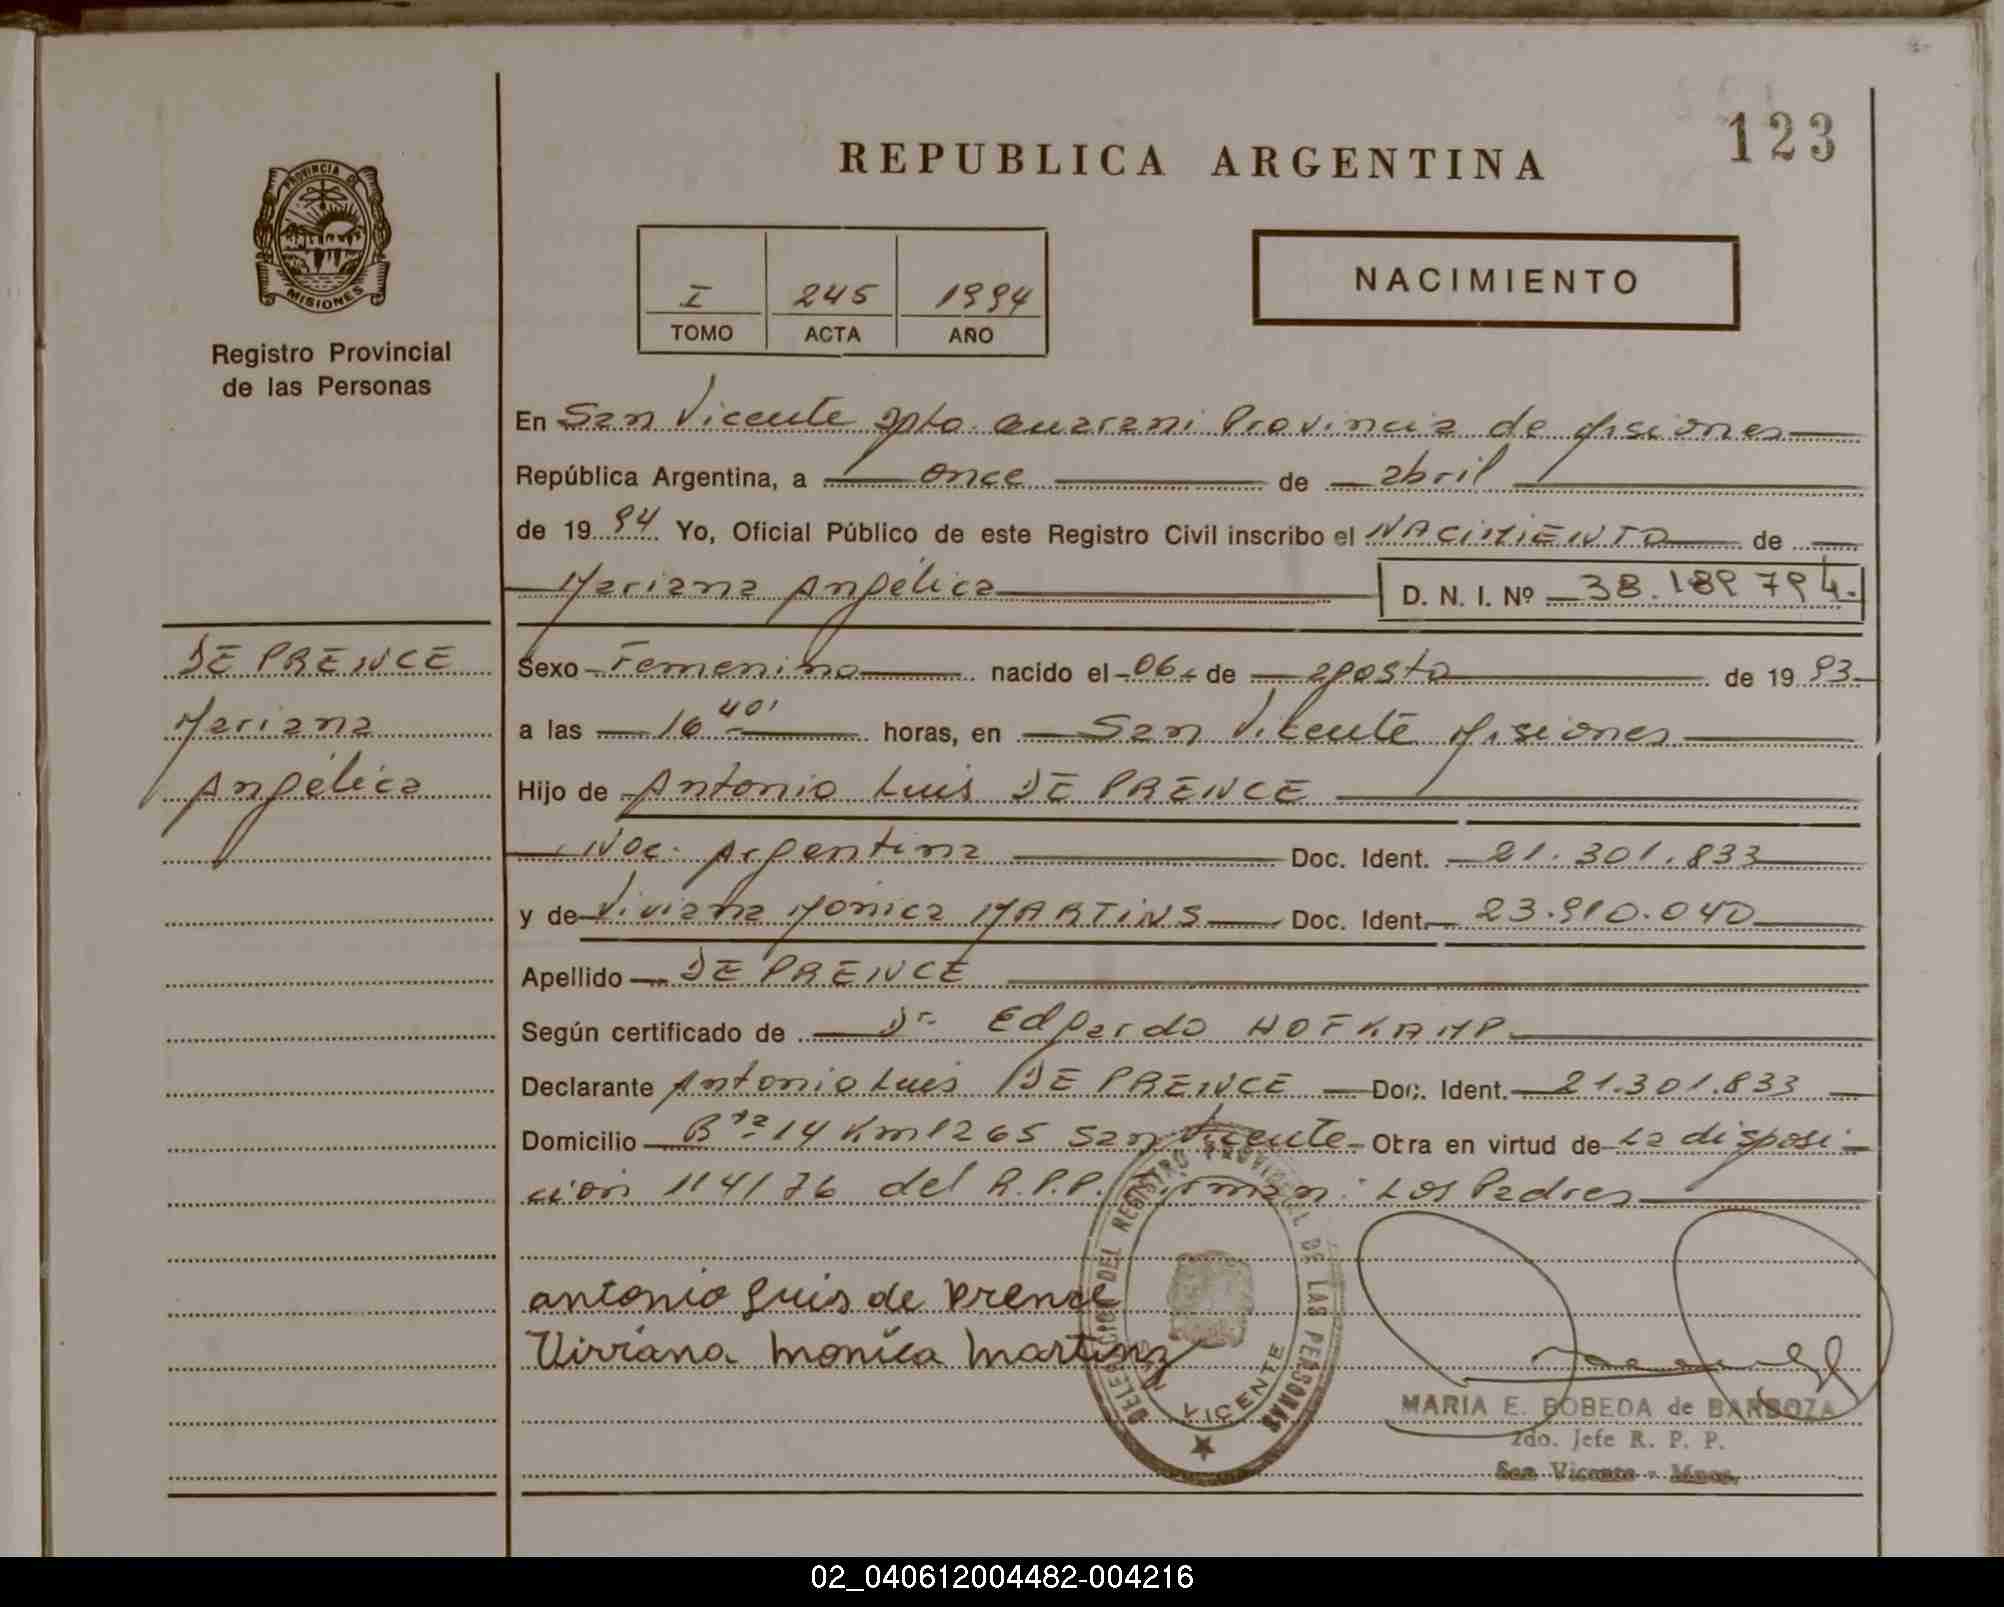 123
REPUBLICA ARGENTINA
PROVINCIA DE
MISIONES
Registro Provincial
de las Personas
I 245 1994
TOMO ACTA AÑO
NACIMIENTO
En San Vicente Dpto. Guarani Provincia de Misiones
República Argentina, a once de abril
de 1994 Yo, Oficial Público de este Registro Civil inscribo el NACIMIENTO de
Mariana Angélica D. N. I. Nº 38.189 794.
DE PRENCE
Mariana
Angélica
Sexo Femenino nacido el 06 de agosto de 1993
a las 16 40' horas, en San Vicente Misiones
Hijo de Antonio Luis DE PRENCE
Nac. Argentina Doc. Ident. 21.301.833
y de Viviana Mónica MARTINS Doc. Ident. 23.910.040
Apellido DE PRENCE
Según certificado de Dr. Edgardo HOFKAMP
Declarante Antonio Luis DE PRENCE Doc. Ident. 21.301.833
Domicilio Rta 14 Km 1265 San Vicente Otra en virtud de La disposi-
ción 114/76 del R.P.P. Firman: Los Padres
antonio Luis de Prence
Viviana Monica Martins
DELEGACION DEL REGISTRO PROVINCIAL DE LAS PERSONAS
VICENTE
MARIA E. BOBEDA de BARBOZA
2do. Jefe R. P. P.
San Vicente - Mnes.
02_040612004482-004216